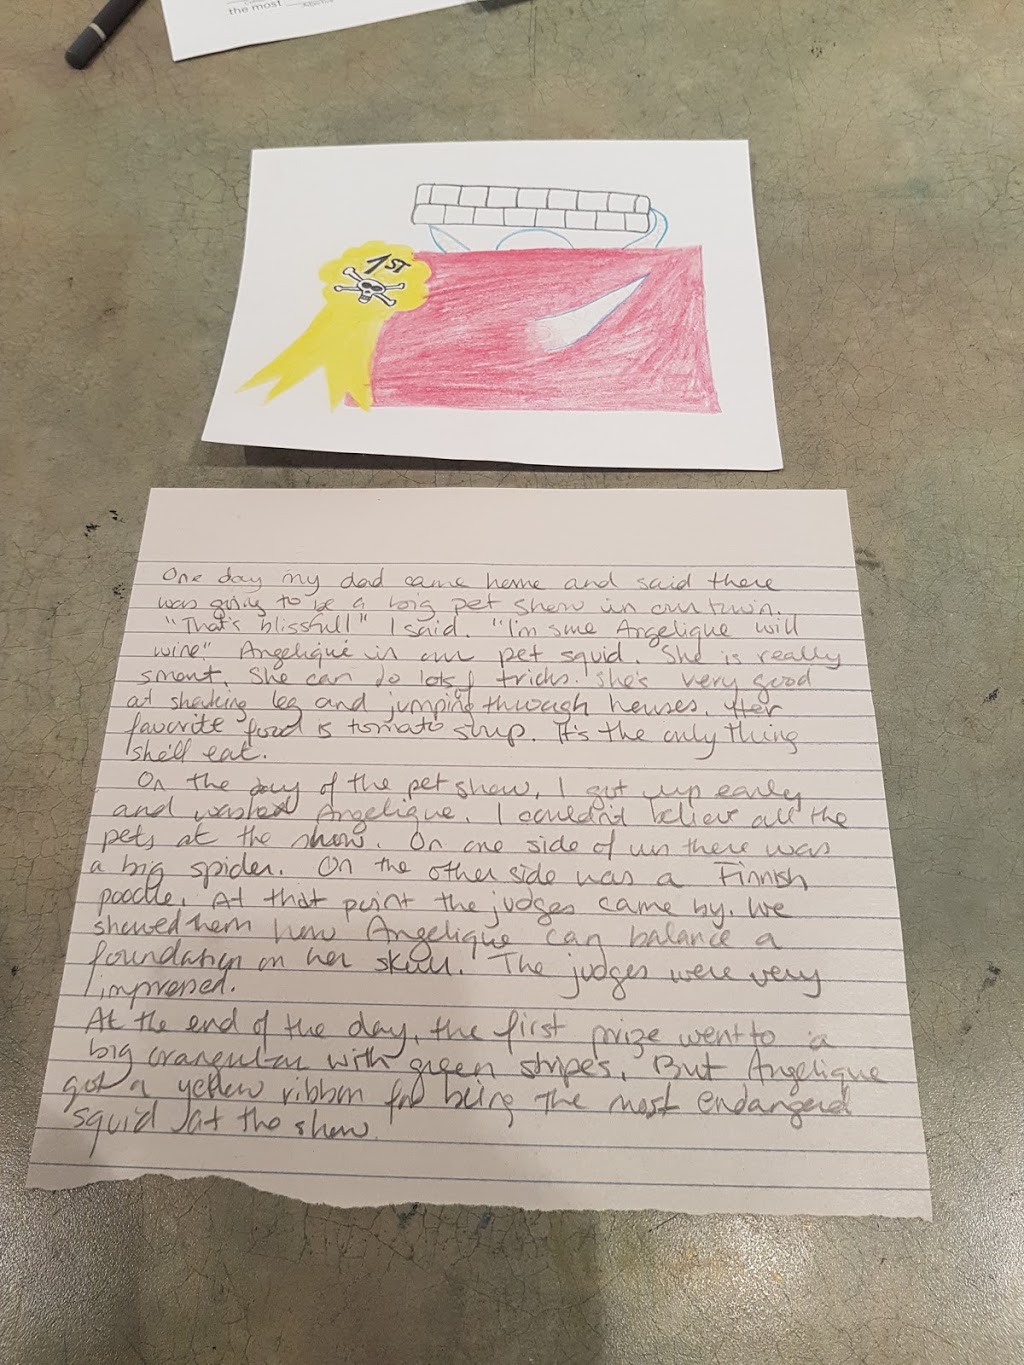 the most
1ST
One day my dad came home and said there
was going to be a big pet show in our town.
"That's blissful!" I said. "I'm sure Angelique will
wine." Angelique is our pet squid. She is really
smart. She can do lots of tricks. She's very good
at shaking leg and jumping through houses. Her
favorite food is tomato soup. It's the only thing
she'll eat.
On the day of the pet show, I got up early
and washed Angelique. I couldn't believe all the
pets at the show. On one side of us there was
a big spider. On the other side was a Finnish
poodle. At that point the judges came by. We
showed them how Angelique can balance a
foundation on her skull. The judges were very
impressed.
At the end of the day, the first prize went to a
big orangutan with green stripes. But Angelique
got a yellow ribbon for being the most endangered
squid at the show.